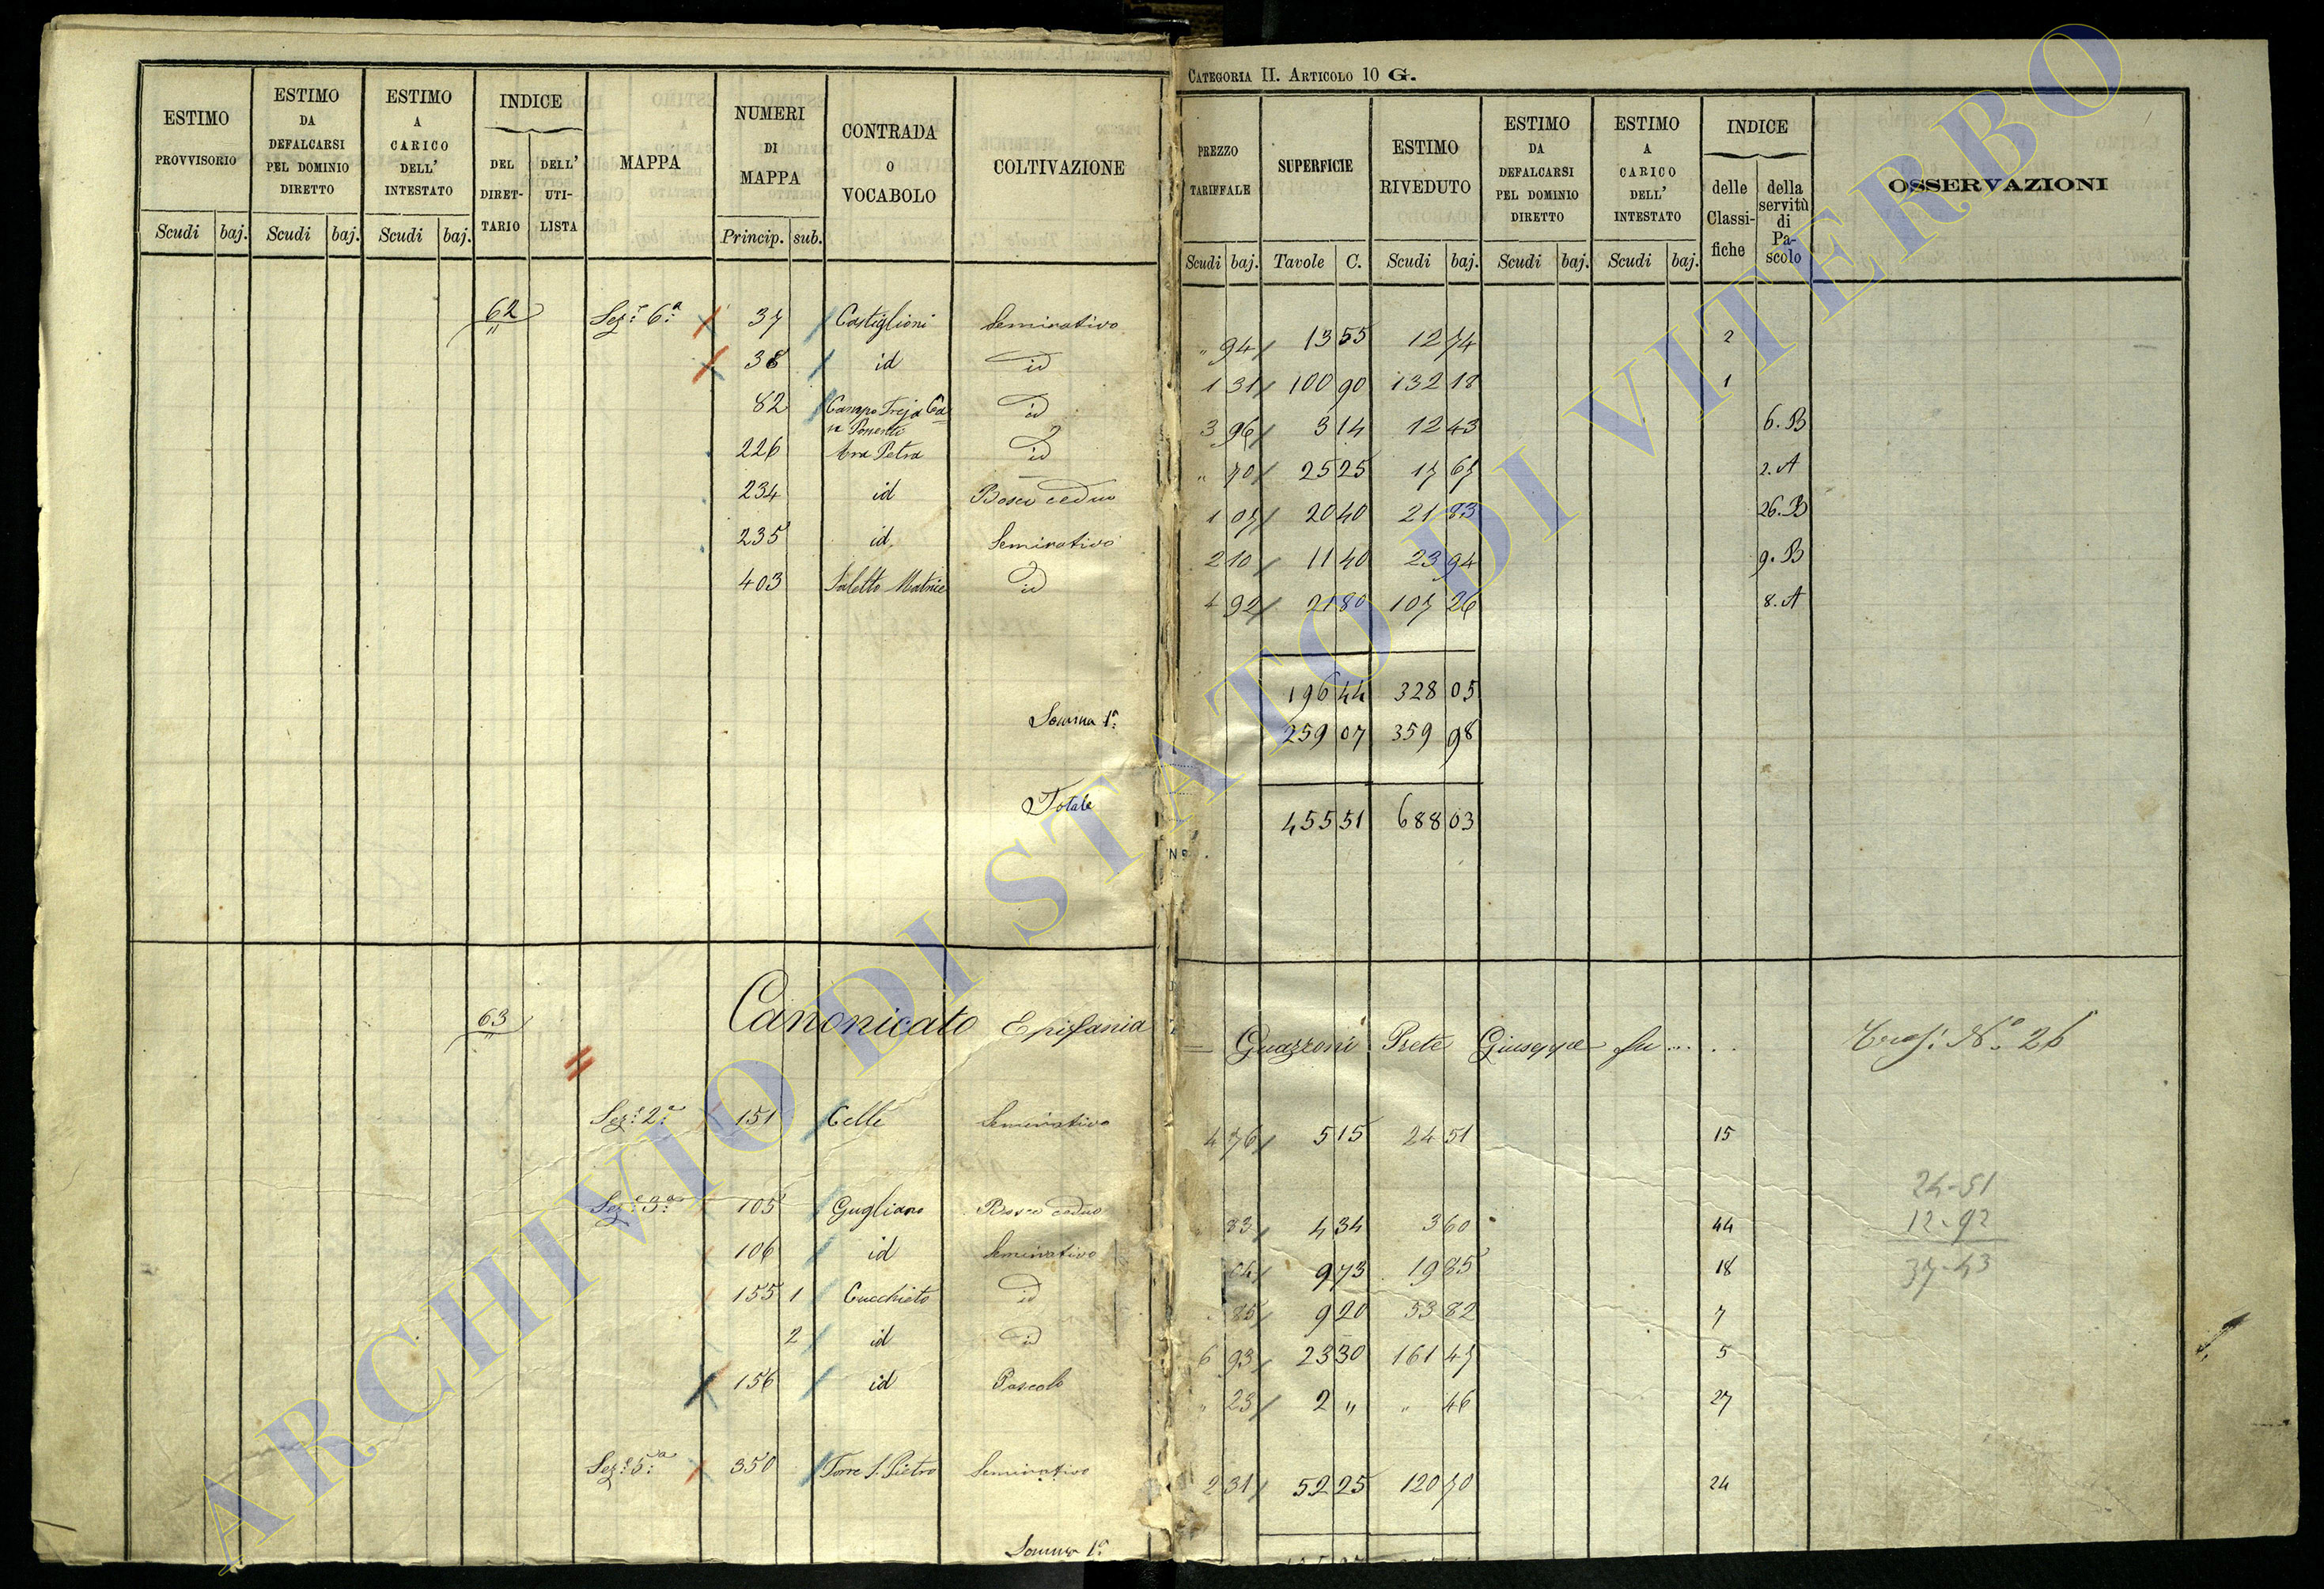 CATEGORIA II. ARTICOLO 10 G.
ESTIMO PROVVISORIO
ESTIMO DA DEFALCARSI PEL DOMINIO DIRETTO
ESTIMO A CARICO DELL' INTESTATO
INDICE
DEL DIRETTARIO
DELL' UTILISTA
MAPPA
NUMERI DI MAPPA
CONTRADA O VOCABOLO
COLTIVAZIONE
PREZZO TARIFFALE
SUPERFICIE
ESTIMO RIVEDUTO
ESTIMO DA DEFALCARSI PEL DOMINIO DIRETTO
ESTIMO A CARICO DELL' INTESTATO
INDICE
delle Classifiche
della servitù di Pascolo
OSSERVAZIONI
Scudi baj. Scudi baj. Scudi baj. Princip. sub. Scudi baj. Tavole C. Scudi baj. Scudi baj. Scudi baj.
62 Sez.e 6.a 37 Castiglioni Seminativo " 94 13 55 12 74 2
38 id id 1 31 100 90 132 18 1
82 Campo Treja Ca= id 3 96 3 14 12 43 6. B
sa Ponenti
226 Ara Petra id " 70 25 25 17 67 2. A
234 id Bosco ceduo 1 07 20 40 21 83 26. B
235 id. Seminativo 2 10 11 40 23 94 9. B
403 Saletto Matrice id 4 92 21 80 107 26 8. A
196 44 328 05
Somma 1.a 259 07 359 98
Totale 455 51 688 03
63 Canonicato Epifania = Guazzoni Prete Giuseppe fu .... N.o 26
Sez.e 2.a 151 Celle Seminativo 4 76 5 15 24 51 15
Sez.e 3.a 105 Gugliano Bosco ceduo 83 4 34 3 60 44
106 id Seminativo 04 9 73 19 85 18
155 1 Cucchieto id 85 9 20 53 82 7
2 id id 6 93 23 30 161 47 5
156 id Pascolo " 23 2 " " 46 27
Sez.e 5.a 350 Torre S. Pietro Seminativo 2 31 52 25 120 70 24
Somma 1.a
24-51
12-92
37-43
ARCHIVIO DI STATO DI VITERBO